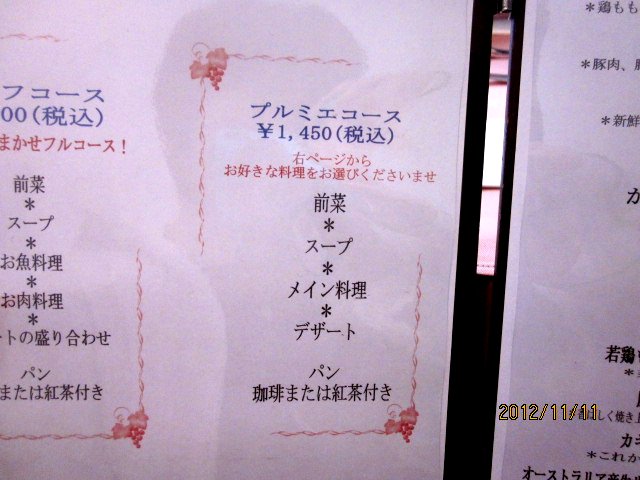 フコース
00(税込)
まかせフルコース！
前菜
＊
スープ
＊
お魚料理
＊
お肉料理
＊
ートの盛り合わせ
パン
または紅茶付き
プルミエコース
￥1,450(税込)
右ページから
お好きな料理をお選びくださいませ
前菜
＊
スープ
＊
メイン料理
＊
デザート
パン
珈琲または紅茶付き
＊鶏もも
＊豚肉、
＊新鮮
か
若鶏
しく焼き上
カキ
＊これか
オーストラリア産
2012/11/11